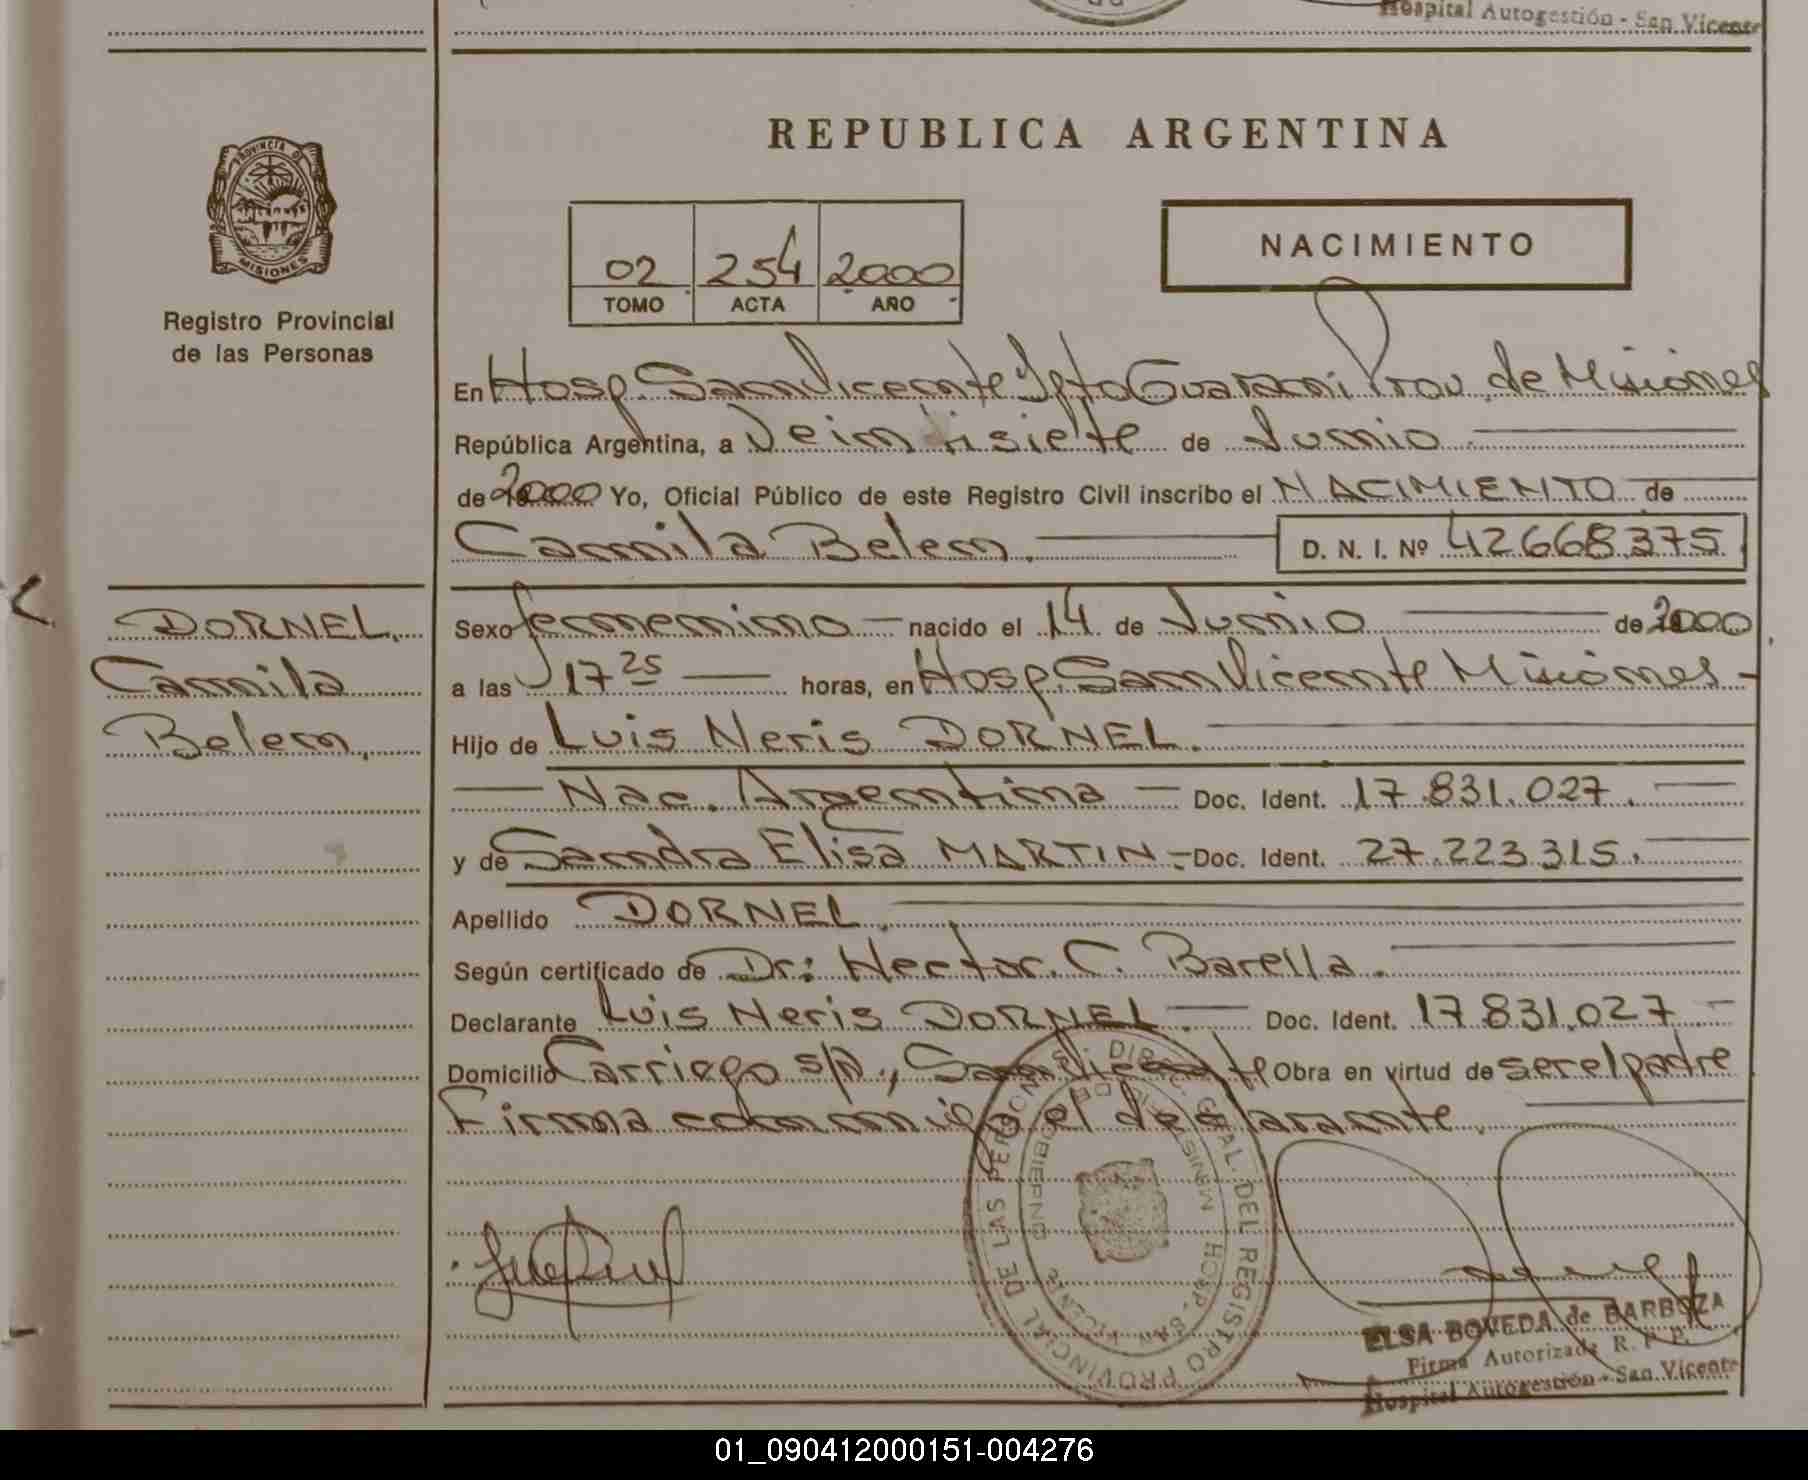 Hospital Autogestión - San Vicente
REPUBLICA ARGENTINA
PROVINCIA DE
MISIONES
Registro Provincial
de las Personas
02 254 2000
TOMO ACTA AÑO
NACIMIENTO
En Hosp. San Vicente Dpto Guarani Prov. de Misiones
República Argentina, a Veintisiete de Junio
de 2000 Yo, Oficial Público de este Registro Civil inscribo el NACIMIENTO de
Camila Belen. D. N. I. Nº 42668375
DORNEL
Camila
Belen
Sexo femenino nacido el 14 de Junio de 2000
a las 17 25 horas, en Hosp. San Vicente Misiones -
Hijo de Luis Neris DORNEL.
Nac. Argentina - Doc. Ident. 17.831.027.
y de Sandra Elisa MARTIN - Doc. Ident. 27.223.315.
Apellido DORNEL.
Según certificado de Dr: Hector. C. Barella.
Declarante Luis Neris DORNEL. Doc. Ident. 17.831.027
Domicilio Carriego s/n., San Vicente Obra en virtud de ser el padre
Firma conmigo el declarante.
DIREC. GRAL. DEL REGISTRO PROVINCIAL DE LAS PERSONAS
MINIST. DE GOBIERNO
HOSP. SAN VICENTE
ELSA BOVEDA de BARBOZA
Firma Autorizada R. P. P.
Hospital Autogestión - San Vicente
01_090412000151-004276